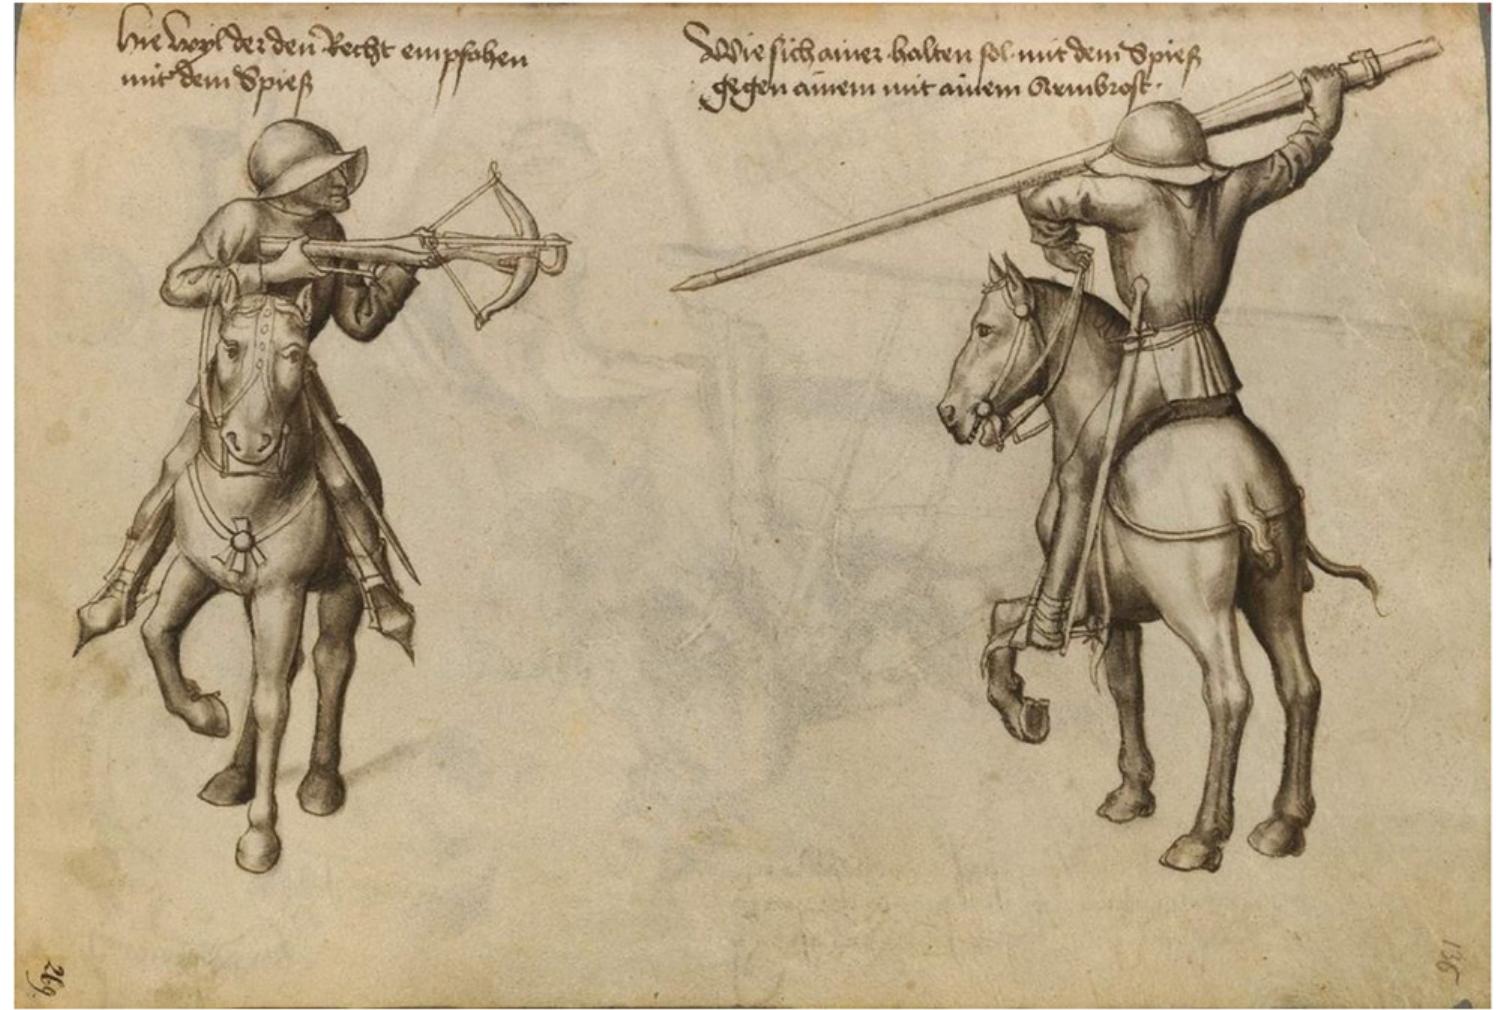 Hie wyl der den Recht empfahen
mit dem Spieß
Wie sich ainer halten sol mit dem Spieß
gegen ainem mit ainem Armbrost.
269.
136